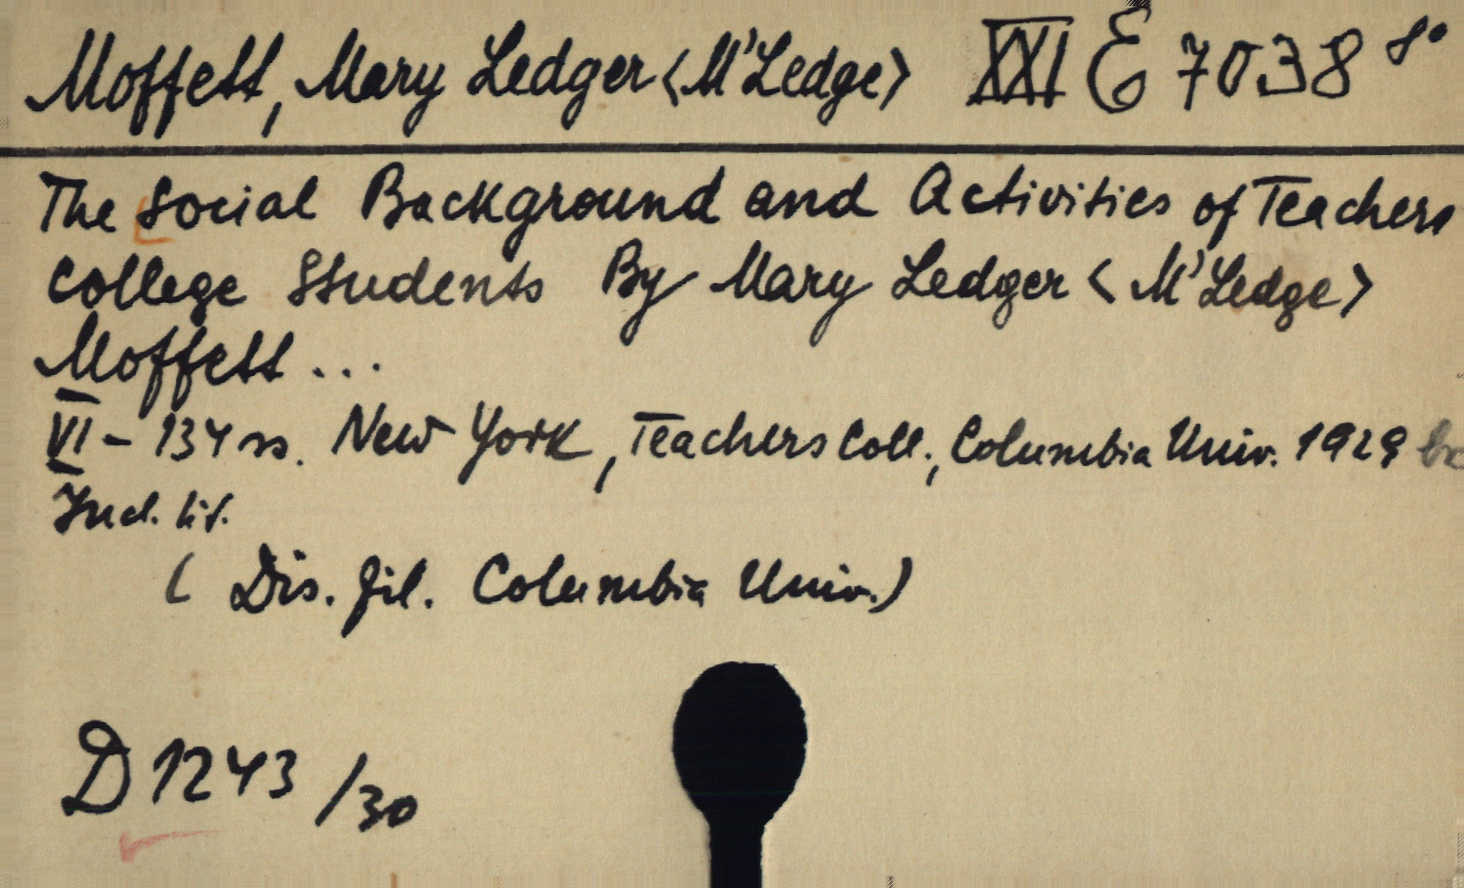 Moffett, Mary Ledger <M'Ledge> XXI E 7038 8°
The Social Background and Activities of Teachers
College Students By Mary Ledger <M'Ledge>
Moffett ...
VI - 134 ss. New York, Teachers Coll., Columbia Univ. 1929
Incl. lit.
(Dis. fil. Columbia Univ.)
D 1243/30